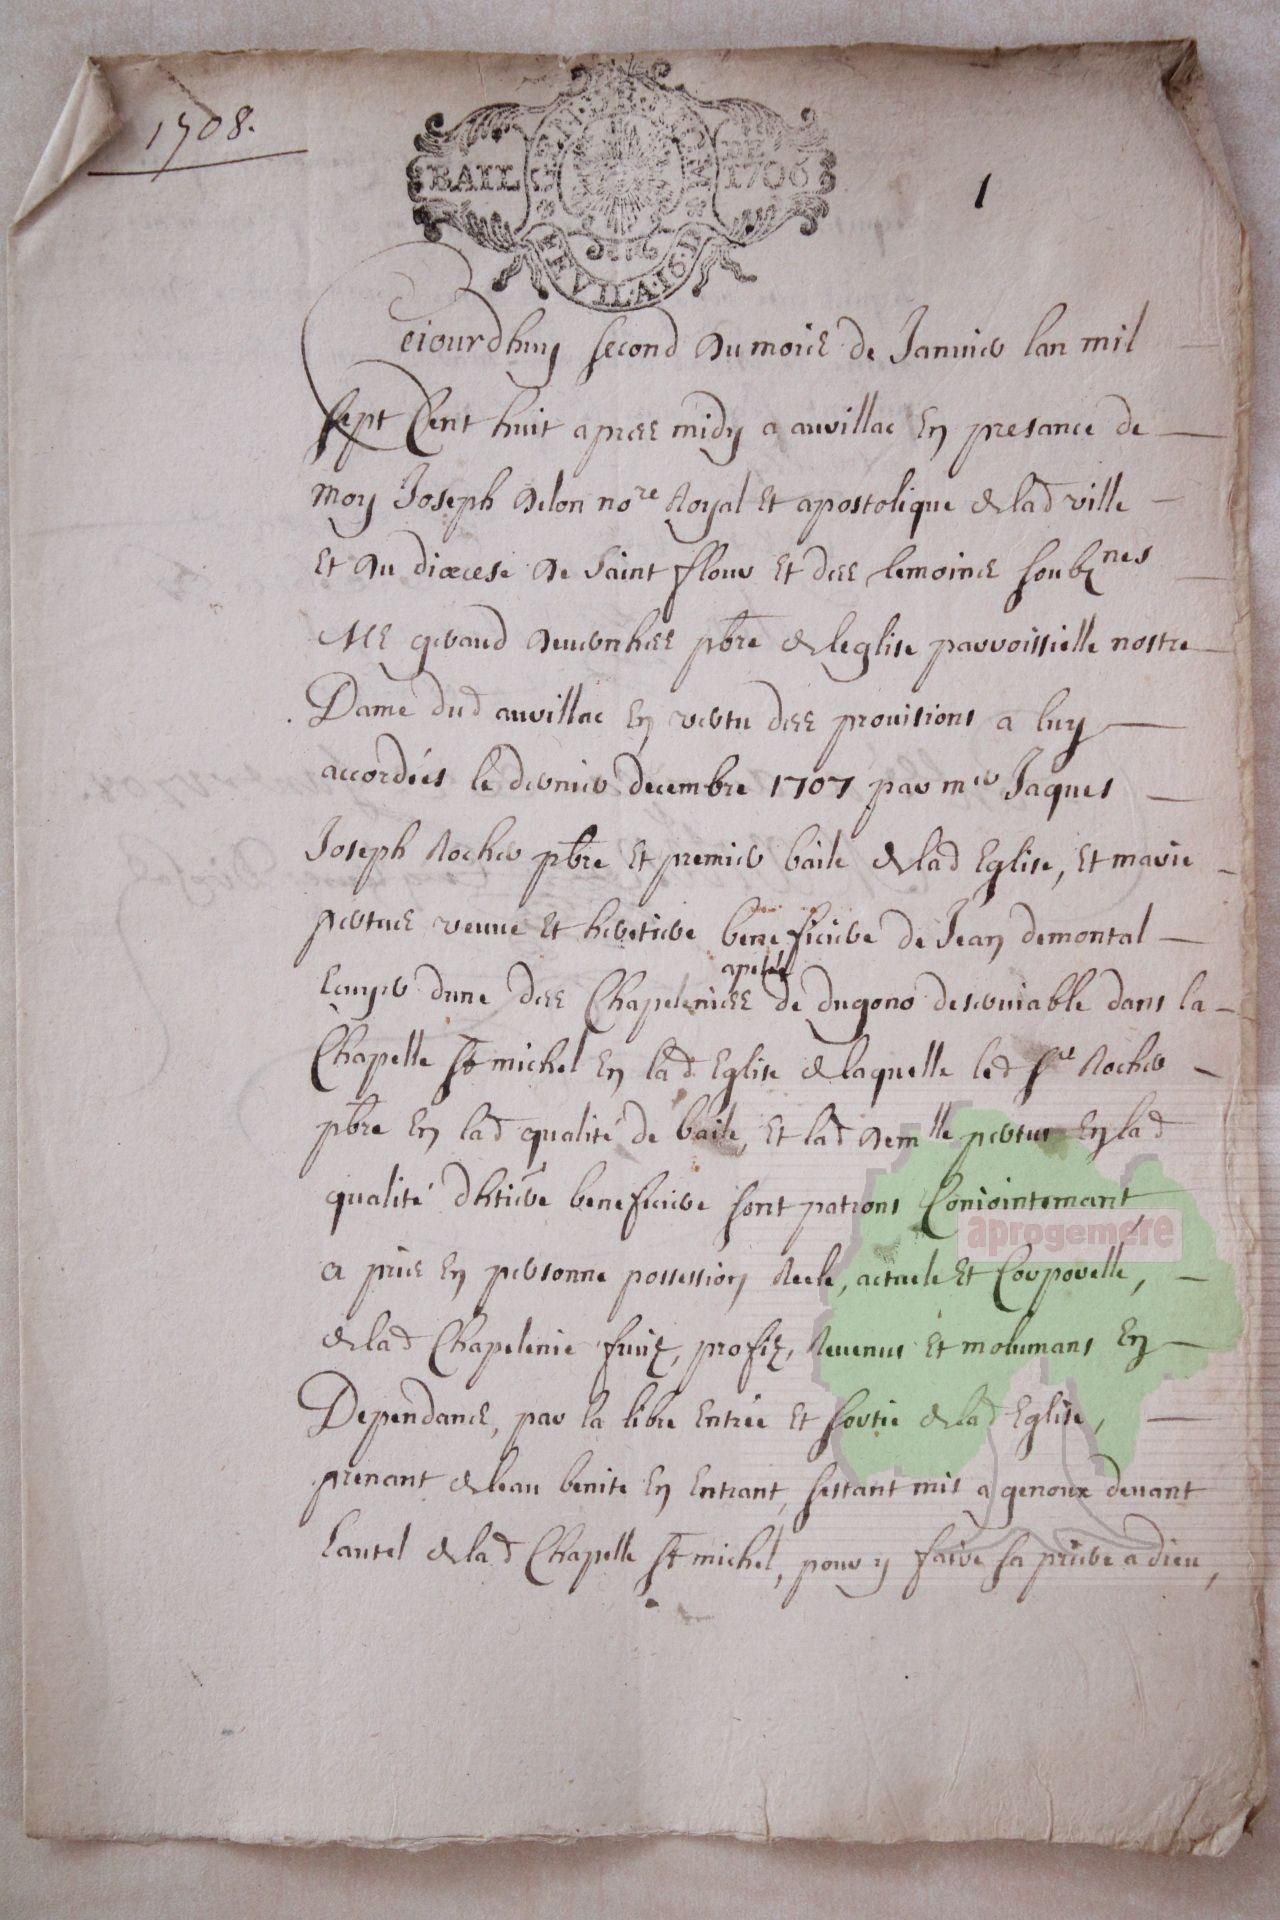 1708.
BAIL DE 1706
1
Ceiourdhuy second du mois de Januier lan mil
sept Cent huit apres midy a auvillac En presance de
moy Joseph delon nore Royal Et apostolique de lad ville
Et du diœcese de Saint flour Et des temoins soubznes
Me geraud pbre de leglise parroissielle nostre
Dame dud auvillac En vertu des prouisions a luy
accordées le dernier decembre 1707 par mer Jaques
Joseph Rocher pbre Et premier baile de lad Eglise, Et marie
pertus veuue Et heretiere beneficiere de Jean demontal
Ecuyer dune des Chapelenies apelée de dugono deseruiable dans la
Chapelle St michel En lad Eglise de laquelle led sr Rocher
pbre En lad qualité de baile, Et lad demlle pertus En lad
qualité dhtiere beneficiere sont patrons Coniointemant,
a pris En personne possession Reele, actuele Et Corporelle,
de lad Chapelenie fruiz, profiz, Reuenus Et molumans En
Dependans, par la libre Entrée Et sortie de lad Eglise,
prenant de leau benite En Entrant, sestant mis a genoux deuant
Lautel de lad Chapelle St michel, pour y faire sa priere a dieu,
aprogemere